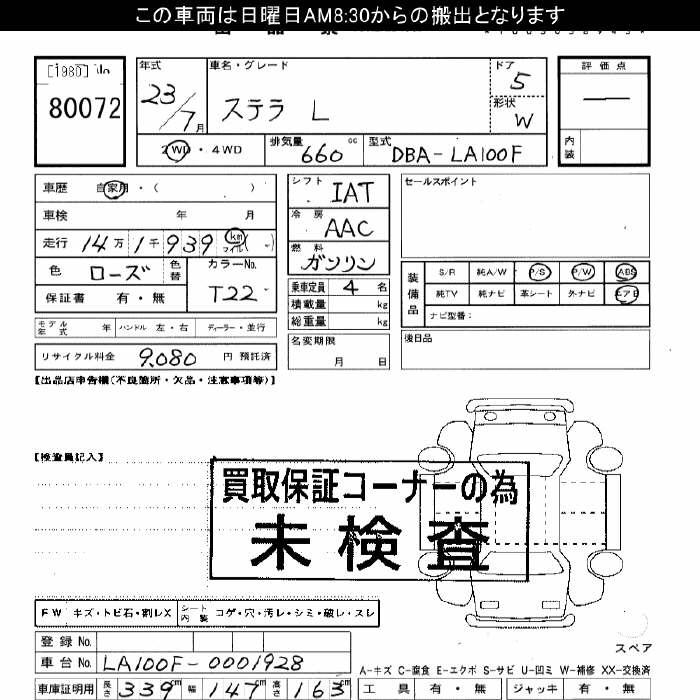 この車両は日曜日AM8:30からの搬出となります
[1980] No
80072
年式
23/7月
車名・グレード
ステラ L
ドア
5
形状
W
評価点
—
内装
2WD・4WD
排気量 660 cc
型式 DBA-LA100F
車歴 自家用・( )
車検 年 月
走行 14万1千939 km マイル( )
色 ローズ 色替
カラーNo. T22
保証書 有・無
モデル年式 年 ハンドル 左・右 ディーラー・並行
リサイクル料金 9,080 円 預託済
シフト IAT
冷房 AAC
燃料 ガソリン
乗車定員 4 名
積載量 kg
総重量 kg
名変期限
月 日
セールスポイント
装備品
S/R 純A/W P/S P/W ABS
純TV 純ナビ 革シート 外ナビ エアB
ナビ型番:
後日品
【出品店申告欄(不良箇所・欠品・注意事項等)】
【検査員記入】
買取保証コーナーの為
未検査
FW キズ・トビ石・割レX シート内装 コゲ・穴・汚レ・シミ・破レ・スレ
登録No.
車台No. LA100F-0001928
車庫証明用 長さ 339cm 幅 147cm 高さ 163cm
スペア
A-キズ C-腐食 E-エクボ S-サビ U-凹ミ W-補修 XX-交換済
工具 有・無 ジャッキ 有・無